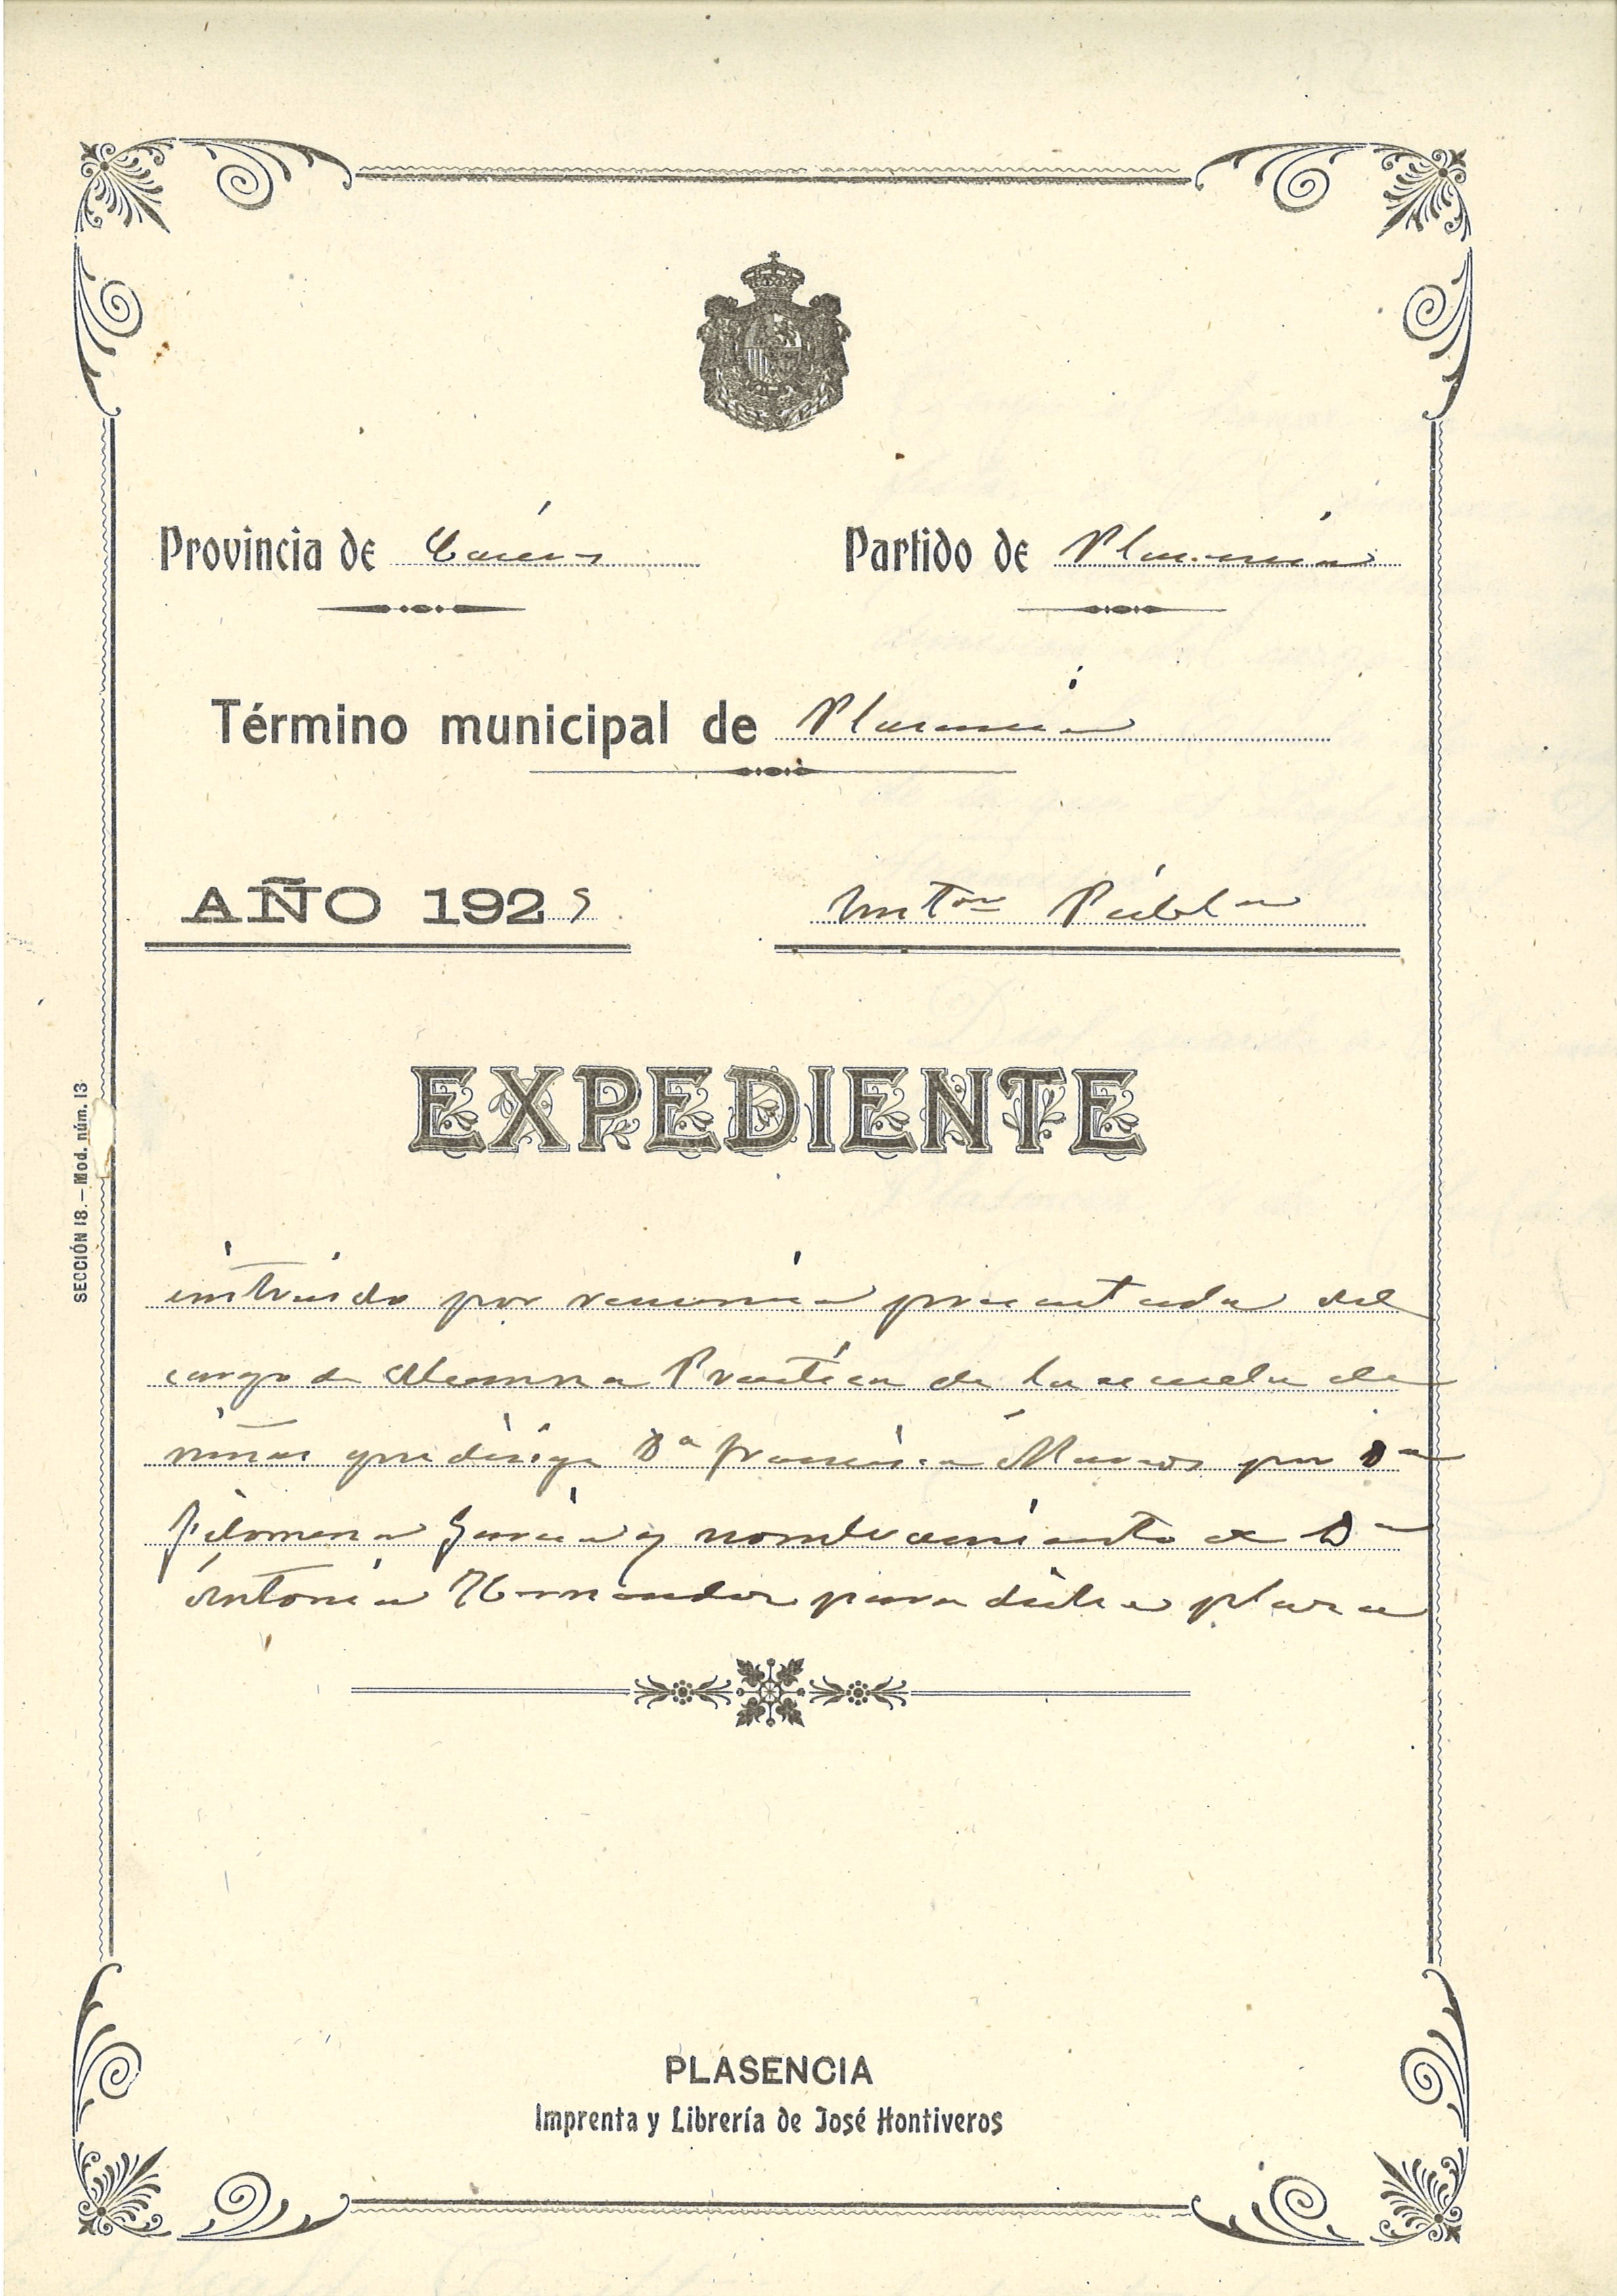 Provincia de Cáceres Partido de Plasencia
Término municipal de Plasencia
AÑO 1925 Inston Públca
EXPEDIENTE
instruido por renuncia presentada del
cargo de Alumna Practica de la escuela de
niñas que dirige Dª Francisca Marcos por Dª
Filomena Garcia y nombramiento de Dª
Antonia Hernandez para dicha plaza
SECCIÓN 18. — Mod. núm. 13
PLASENCIA
Imprenta y Librería de José Hontiveros